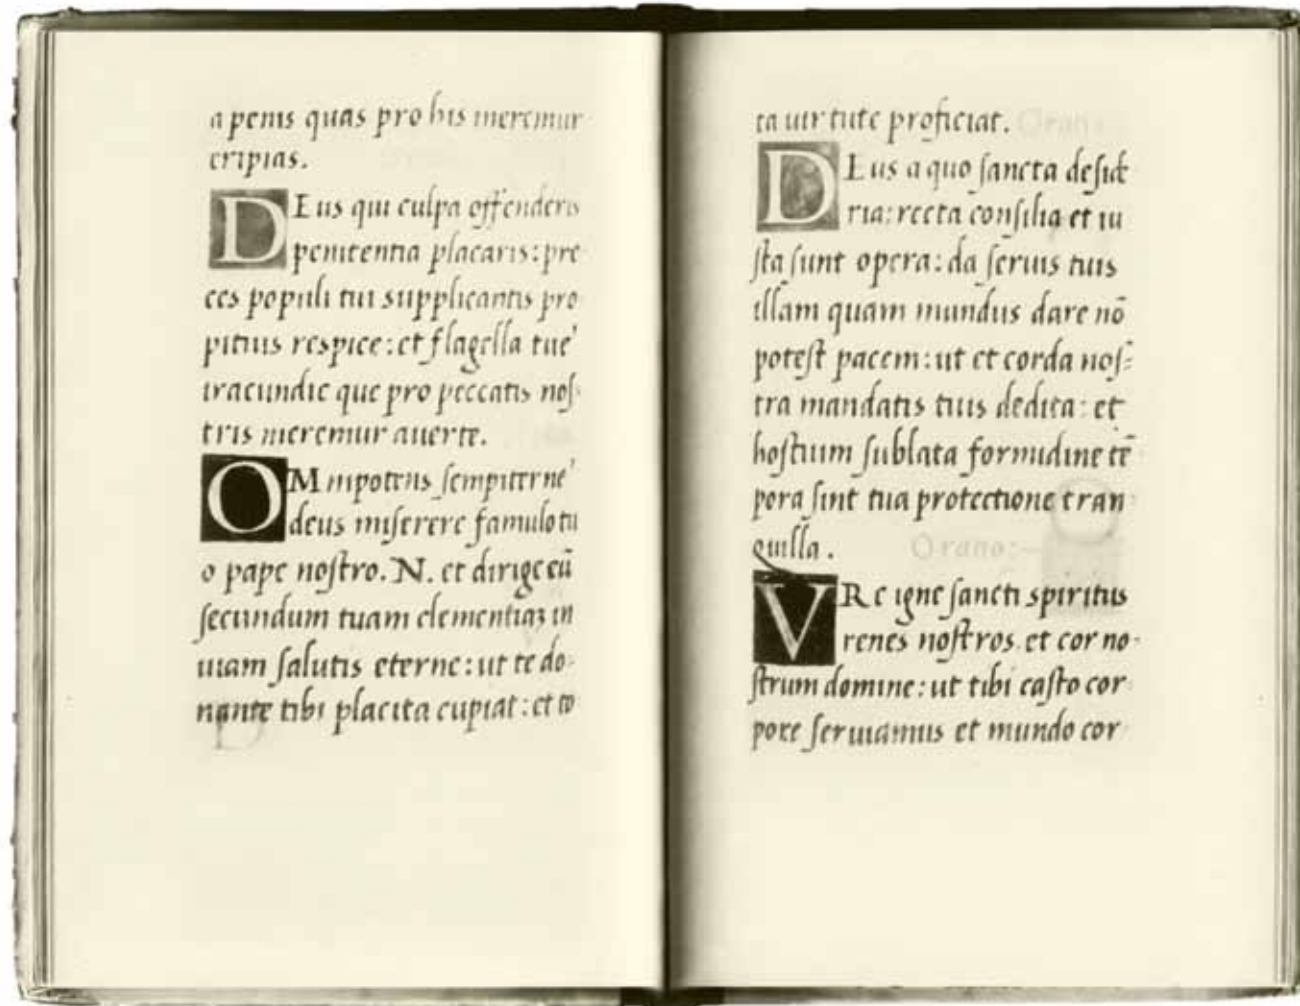 a penis quas pro his meremur
eripias.
DEus qui culpa offenderis
penitentia placaris: pre
ces populi tui supplicantis pro
pitius respice: et flagella tue
iracundie que pro peccatis noſ
tris meremur auerte.
OMnipotens ſempiterne
deus miſerere famulo tu
o pape noſtro. N. et dirige eū
ſecundum tuam clementiaꝫ in
uiam ſalutis eterne: ut te do
nante tibi placita cupiat: et to
ta uirtute proficiat.
DEus a quo ſancta deſide
ria: recta conſilia et iu
ſta ſunt opera: da ſeruis tuis
illam quam mundus dare nō
poteſt pacem: ut et corda noſ=
tra mandatis tuis dedita: et
hoſtium ſublata formidine tē
pora ſint tua protectione tran
quilla.
VRe igne ſancti spiritus
renes noſtros et cor no-
ſtrum domine: ut tibi caſto cor
pore ſeruiamus et mundo cor